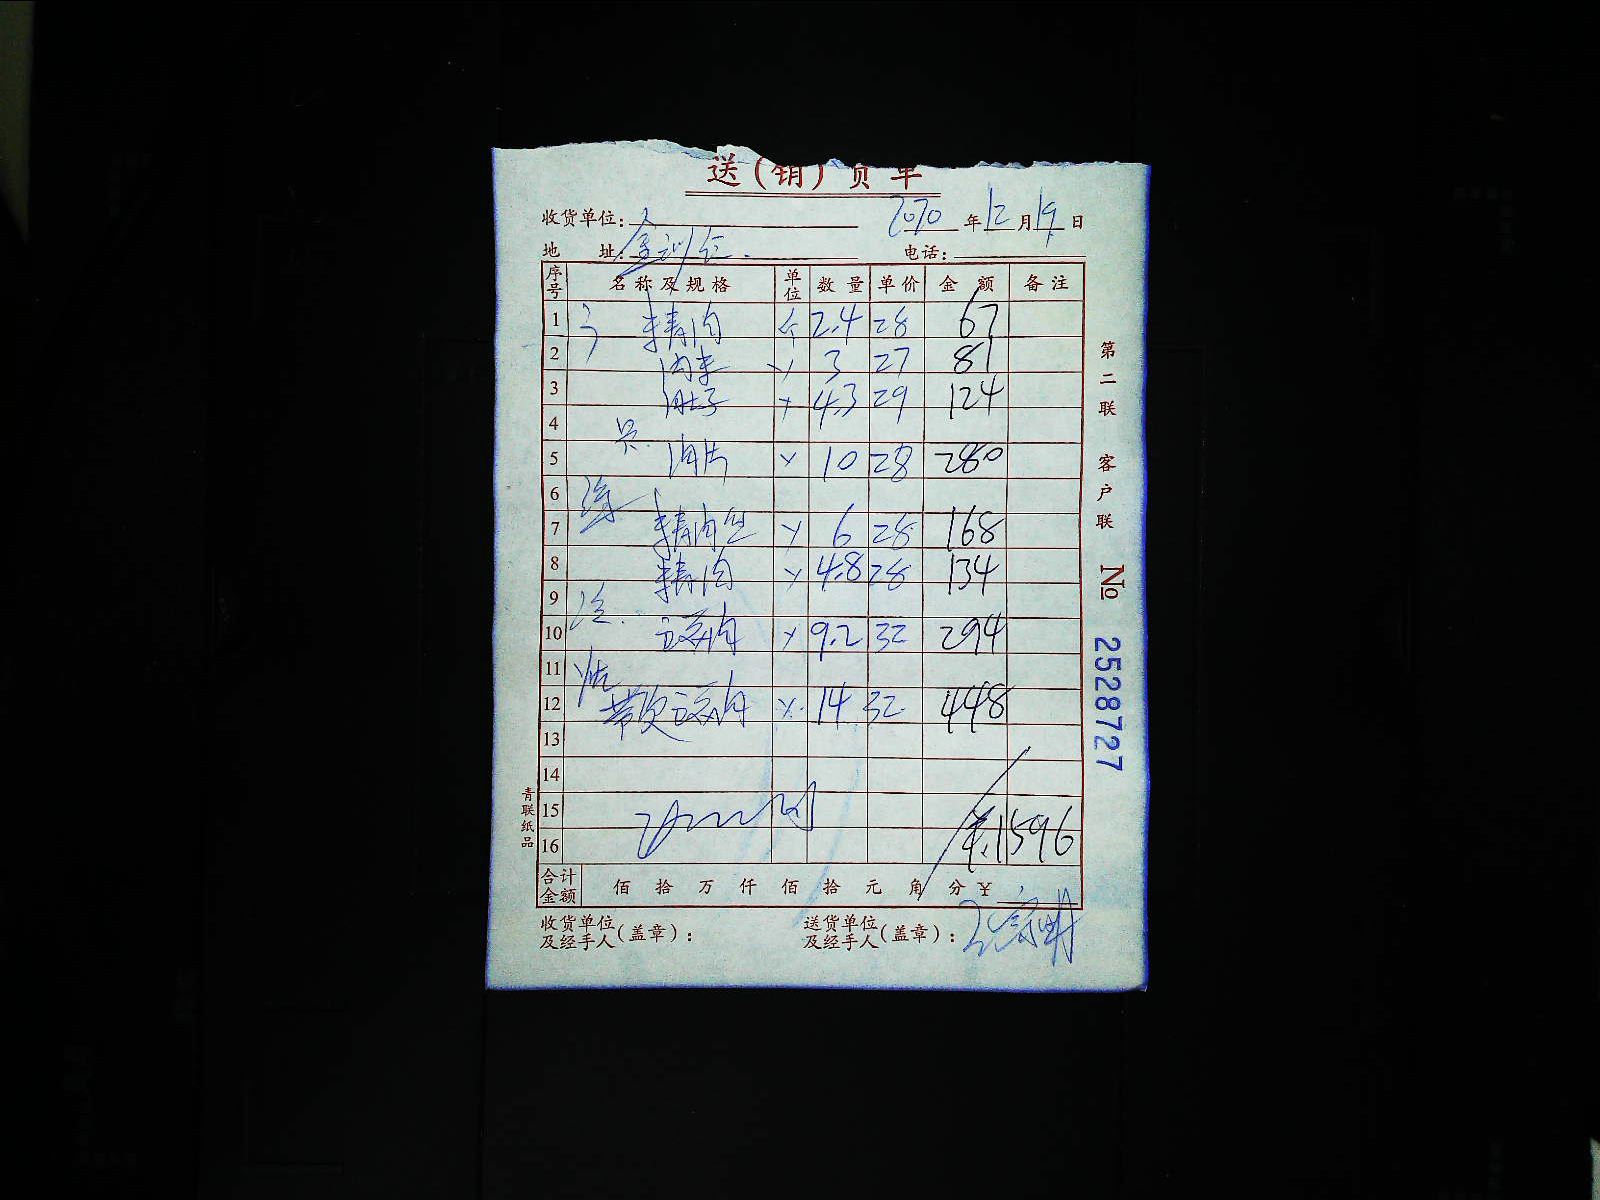 送(销)货单
收货单位: 2020年12月19日
地 址: 电话:
序号 名称及规格 单位 数量 单价 金额 备注
1 精肉 2.4 28 67
2 肉末 3 27 81
3 肚子 4.3 29 124
4
5 肉片 10 28 280
6
7 精肉丝 6 28 168
8 精肉 4.8 28 134
9
10 9.2 32 294
11
12 14 32 448
13
14
15
16 ¥1596
合计金额 佰 拾 万 仟 佰 拾 元 角 分 ¥
收货单位及经手人(盖章): 送货单位及经手人(盖章):
第二联 客户联 No 2528727
青联纸品